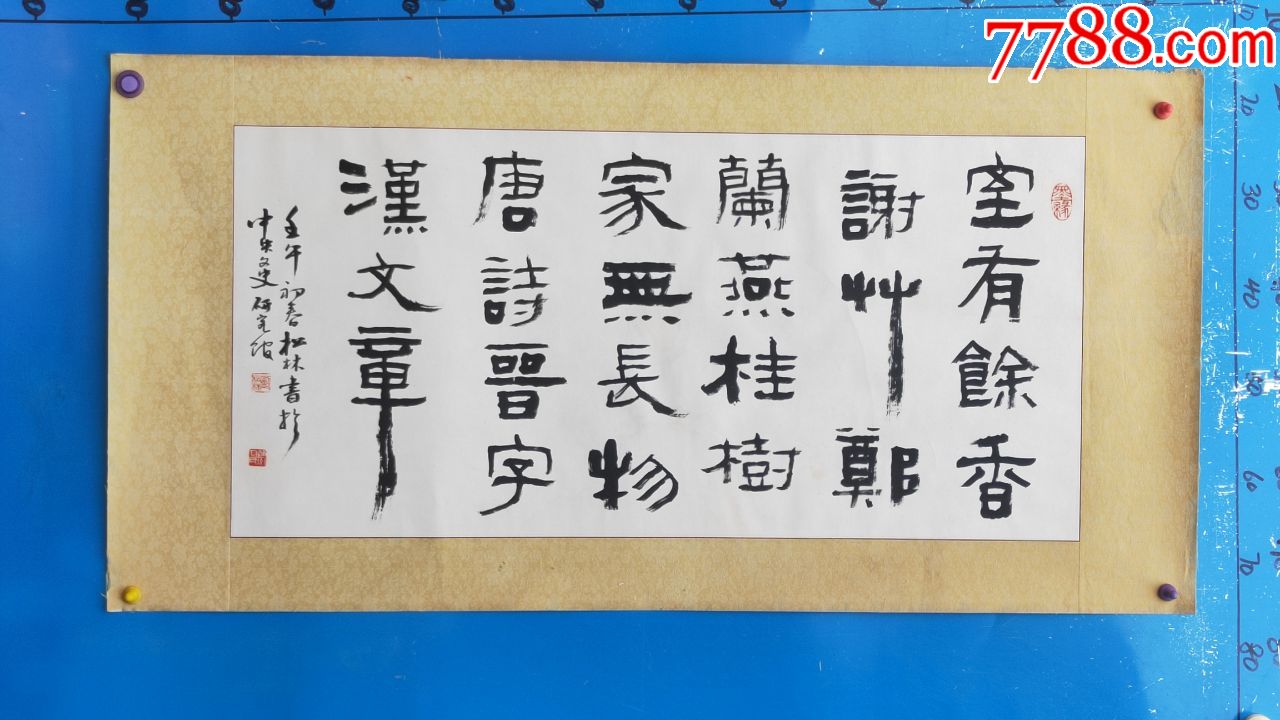 室有餘香
謝艸鄭
蘭燕桂樹
家無長物
唐詩晉字
漢文章
壬午初春松林書於
中央文史研究館
7788.com
10
20
30
40
50
60
70
80